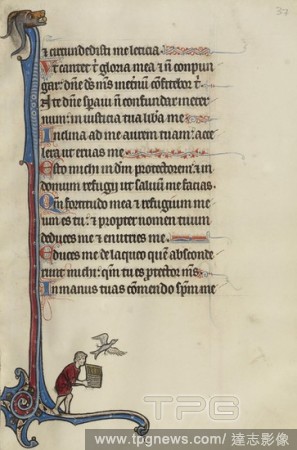 37
& circundedisti me leticia
Ut cantet t̄ gloria mea & ñ conpun
gar: dñe ds̄ ms̄ in eternū confitebor t̄.
In te dñe speravi ñ confundar in eter
num: in iusticia tua libera me
Inclina ad me aurem tuam: acce
lera ut eruas me
Esto michi in dm̄ protectorem: & in
domum refugii ut saluum me facias.
Qm̄ fortitudo mea & refugium me
um es tu: & propter nomen tuum
deduces me & enutries me
Educes me de laqueo quē absconde
runt michi: qm̄ tu es protector ms̄
In manus tuas cōmendo spm̄ me
TPG
www.tpgnews.com / 達志影像